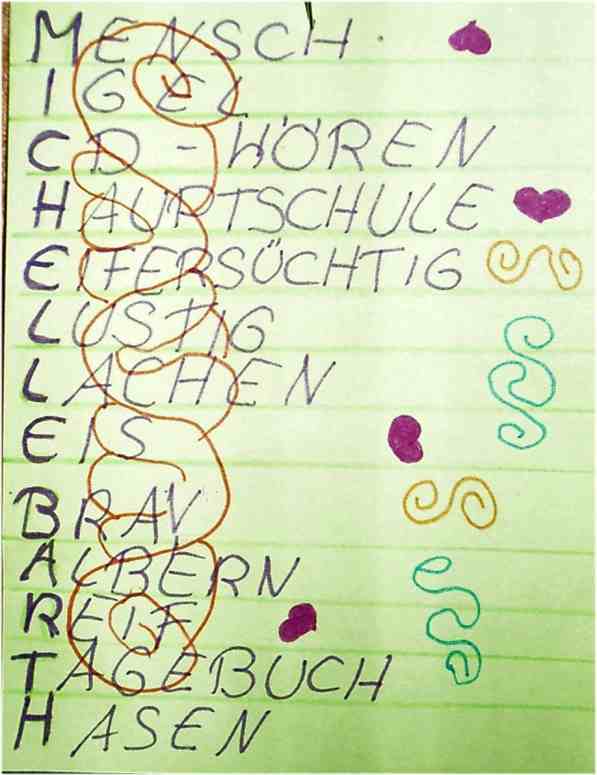 MENSCH.
IGEL
CD - HÖREN
HAUPTSCHULE
EIFERSÜCHTIG
LUSTIG
LACHEN
EIS
BRAV
ALBERN
REIF
TAGEBUCH
HASEN